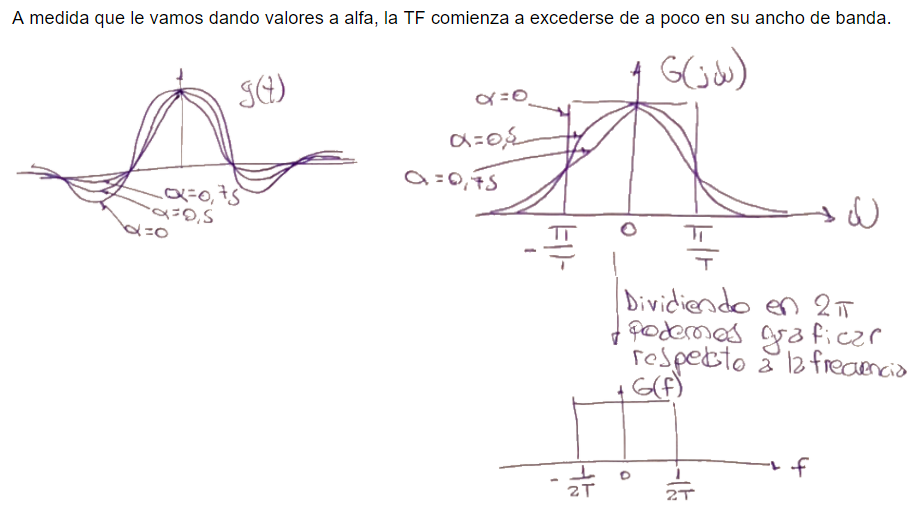 A medida que le vamos dando valores a alfa, la TF comienza a excederse de a poco en su ancho de banda.
g(t)
α=0,75
α=0,5
α=0
G(jω)
α=0
α=0,5
α=0,75
ω
-π/T
0
π/T
Dividiendo en 2π
podemos graficar
respecto a la frecuencia
G(f)
f
-1/2T
0
1/2T